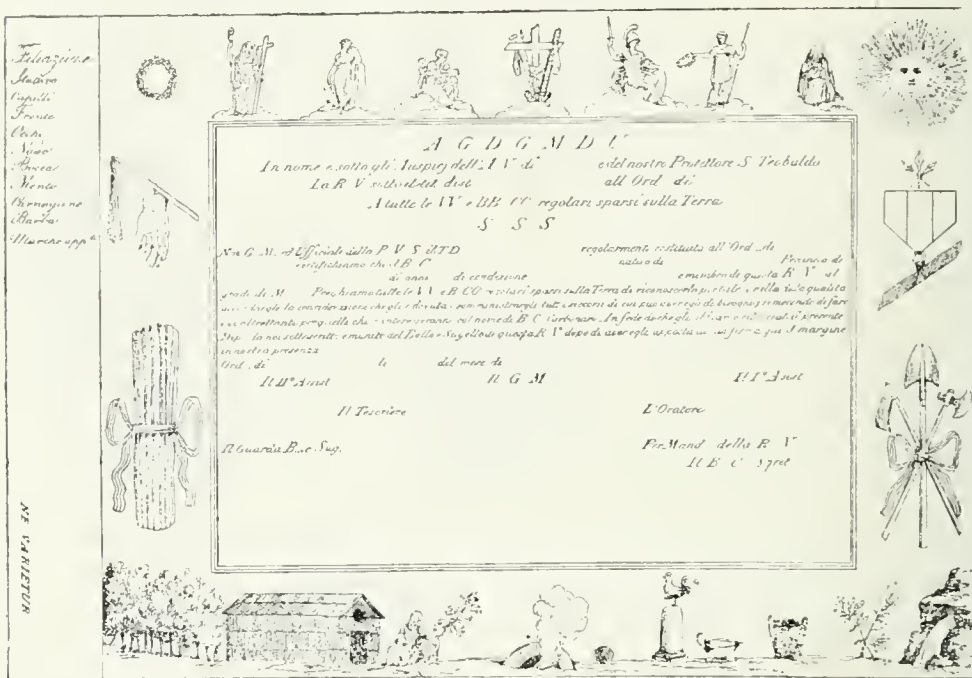 Filiazione
Statura
Capelli
Fronte
Occhi
Naso
Bocca
Mento
Carnagione
Barba
Marche app
NE VARIETUR
A G D G M D U
In nome e sotto gli Auspicj dell V di e del nostro Protettore S Teobaldo
La R V sotto dist all Ord di
A tutte le VV e BB CC regolari sparsi sulla Terra
S S S
Noi G M ed Uffiziali della R V S IL TD regolarmente costituita all'Ord di
certifichiamo che il B C nativo di Provincia di
di anni di condizione e membro di questa R V al
grado di M Preghiamo tutte le VV e B CC regolari sparsi sulla Terra di riconoscerlo per tale e nella
la considerazione che gli è dovuta tutti i soccorsi di cui può aver egli di bisogno di fare
altrettanto per quelli che col nome di B C Carbonari In fede di che gli il presente
da noi sottoscritto e munito del Bollo e Sugello di questa R V dopo di aver egli apposta la sua firma qui al margine
in nostra presenza
Ord di li del mese di
Il II° Assist Il G M Il I° Assist
Il Tesoriere L'Oratore
Il Guarda B e Sug. Per Mand della R V
Il B C Segret